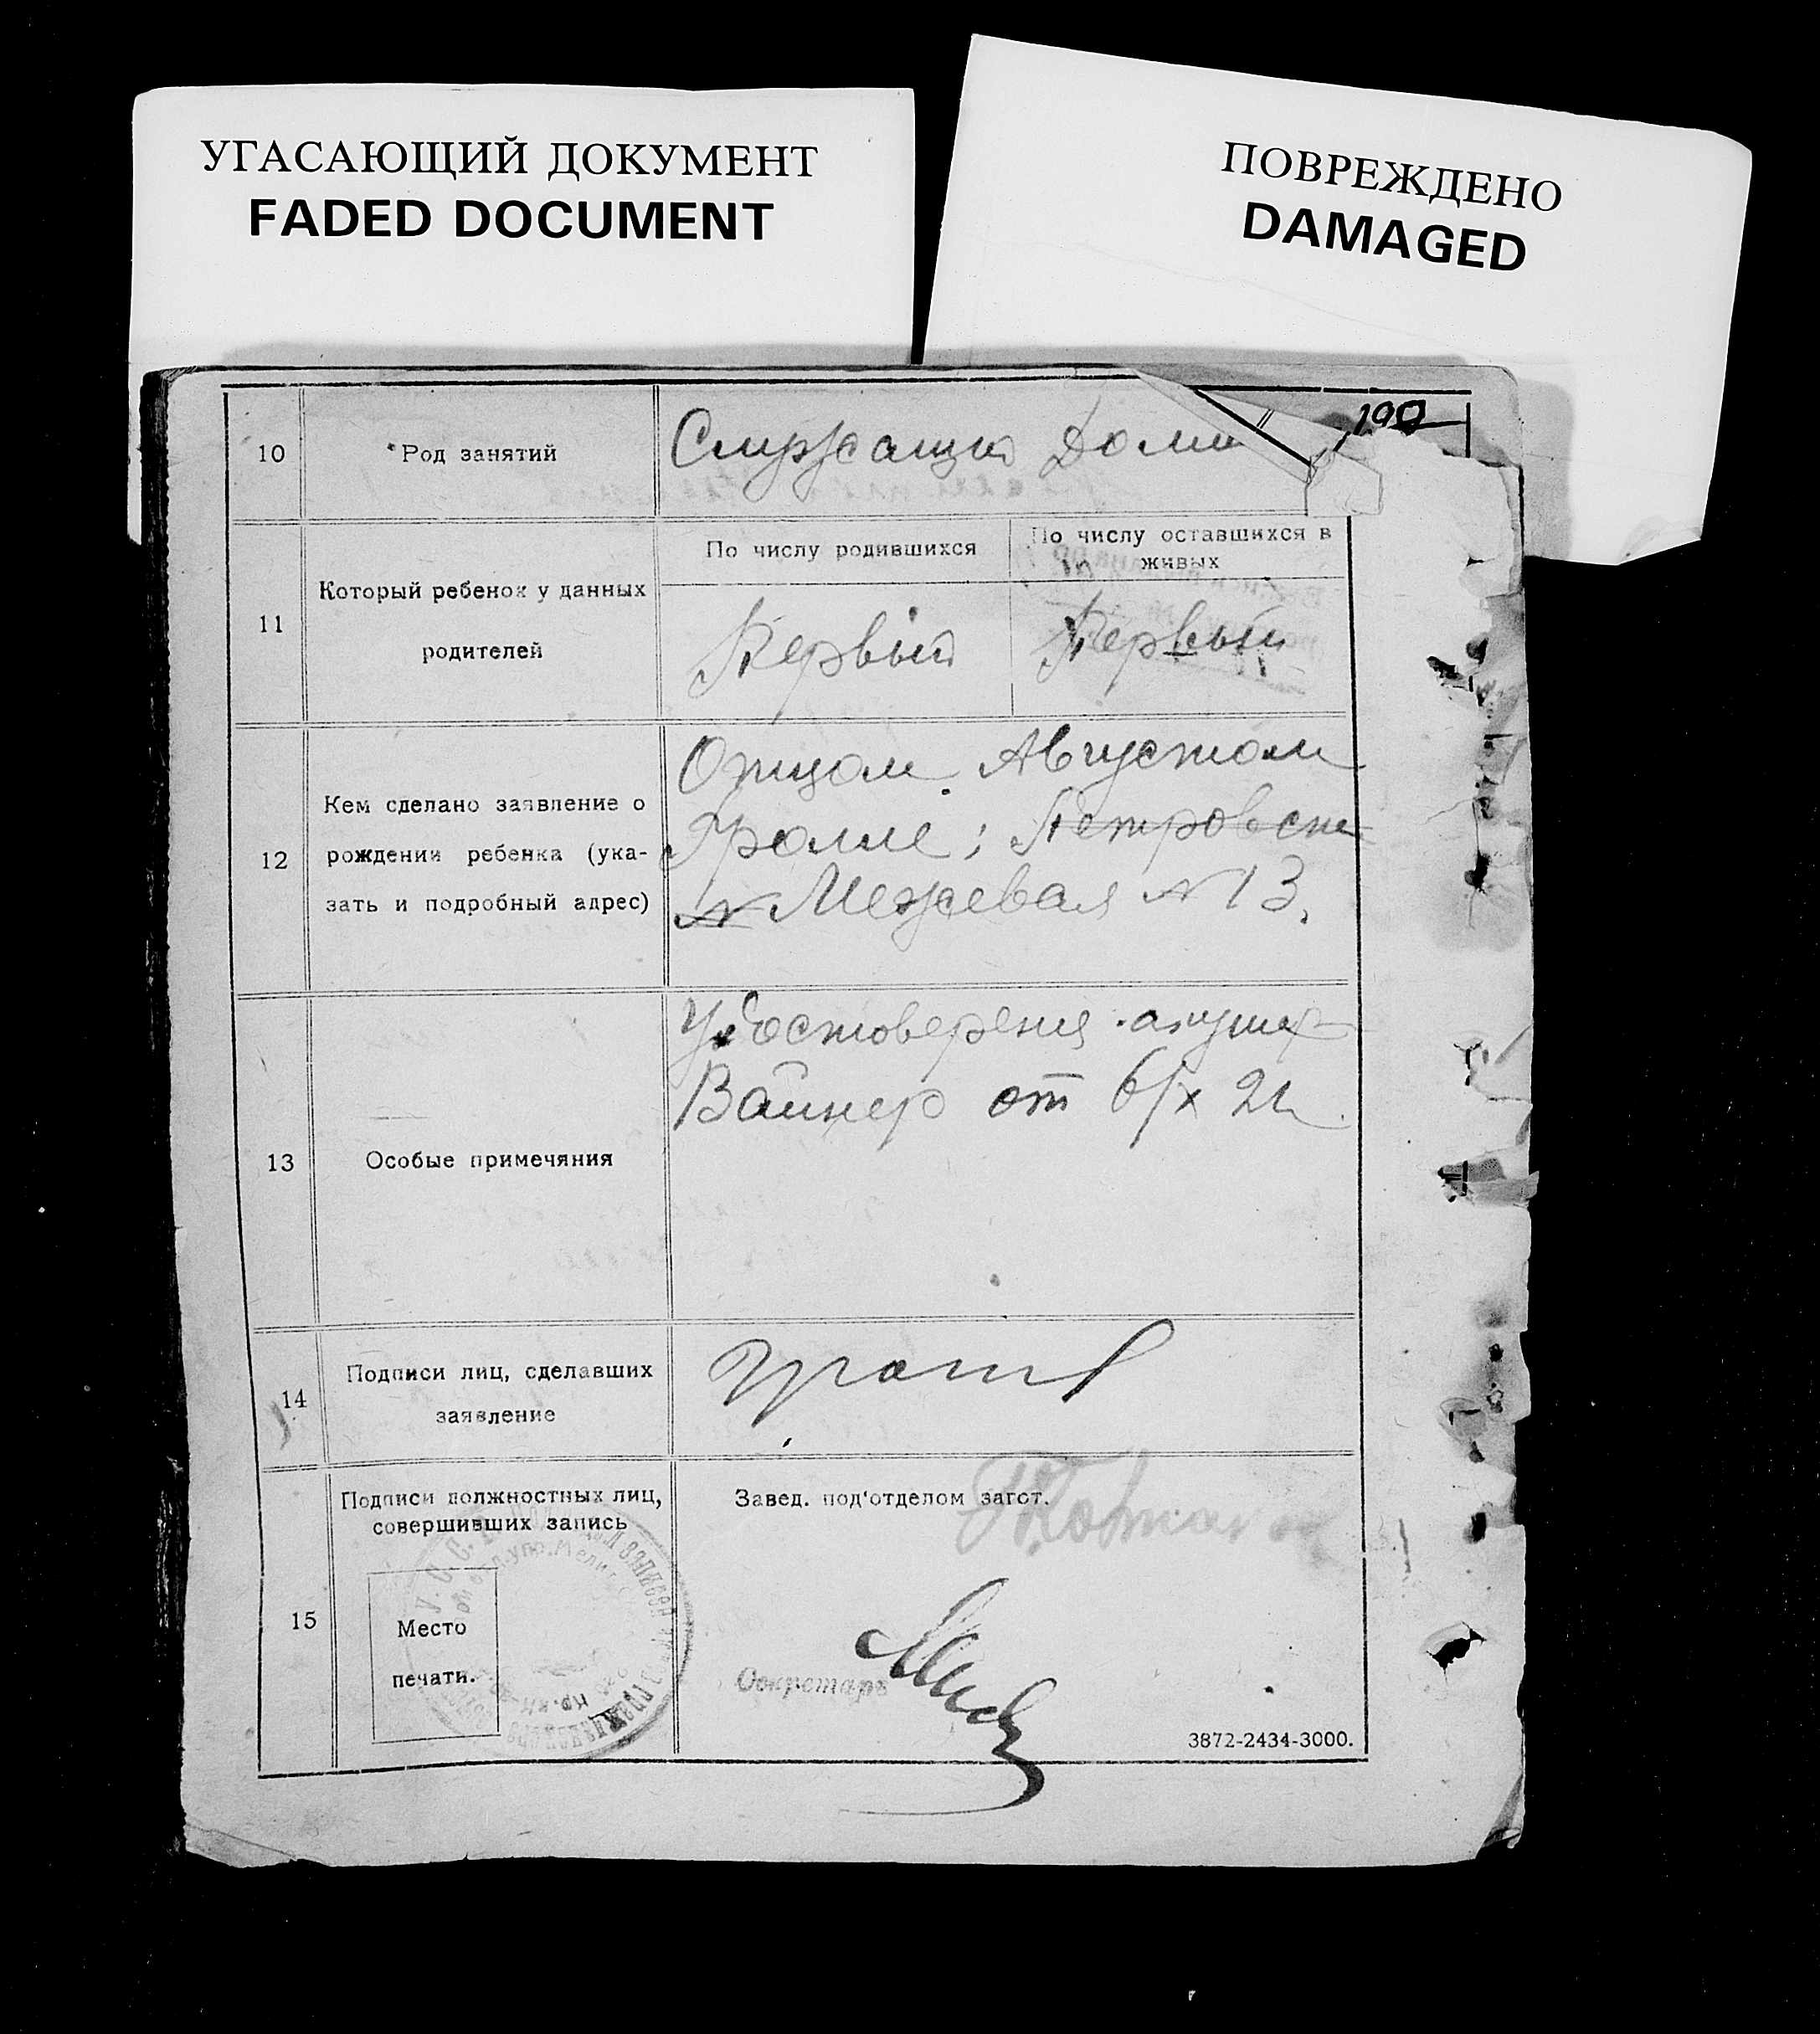 УГАСАЮЩИЙ ДОКУМЕНТ
FADED DOCUMENT
ПОВРЕЖДЕНО
DAMAGED
10
Род занятий
Служащий Доми
11
Который ребенок у данных
родителей
По числу родившихся
По числу оставшихся в
живых
Первый
Первый
12
Кем сделано заявление о
рождении ребенка (ука-
зать и подробный адрес)
Отцом Августом
; Петровск
N Межевая N 13.
13
Особые примечяния
Удостоверения акушер
Вайнер от 6/х 21
14
Подписи лиц, сделавших
заявление
15
Подписи должностных лиц,
совершивших запись
Место
печати.
Завед. под'отделом загст.
Секретарь
3872-2434-3000.